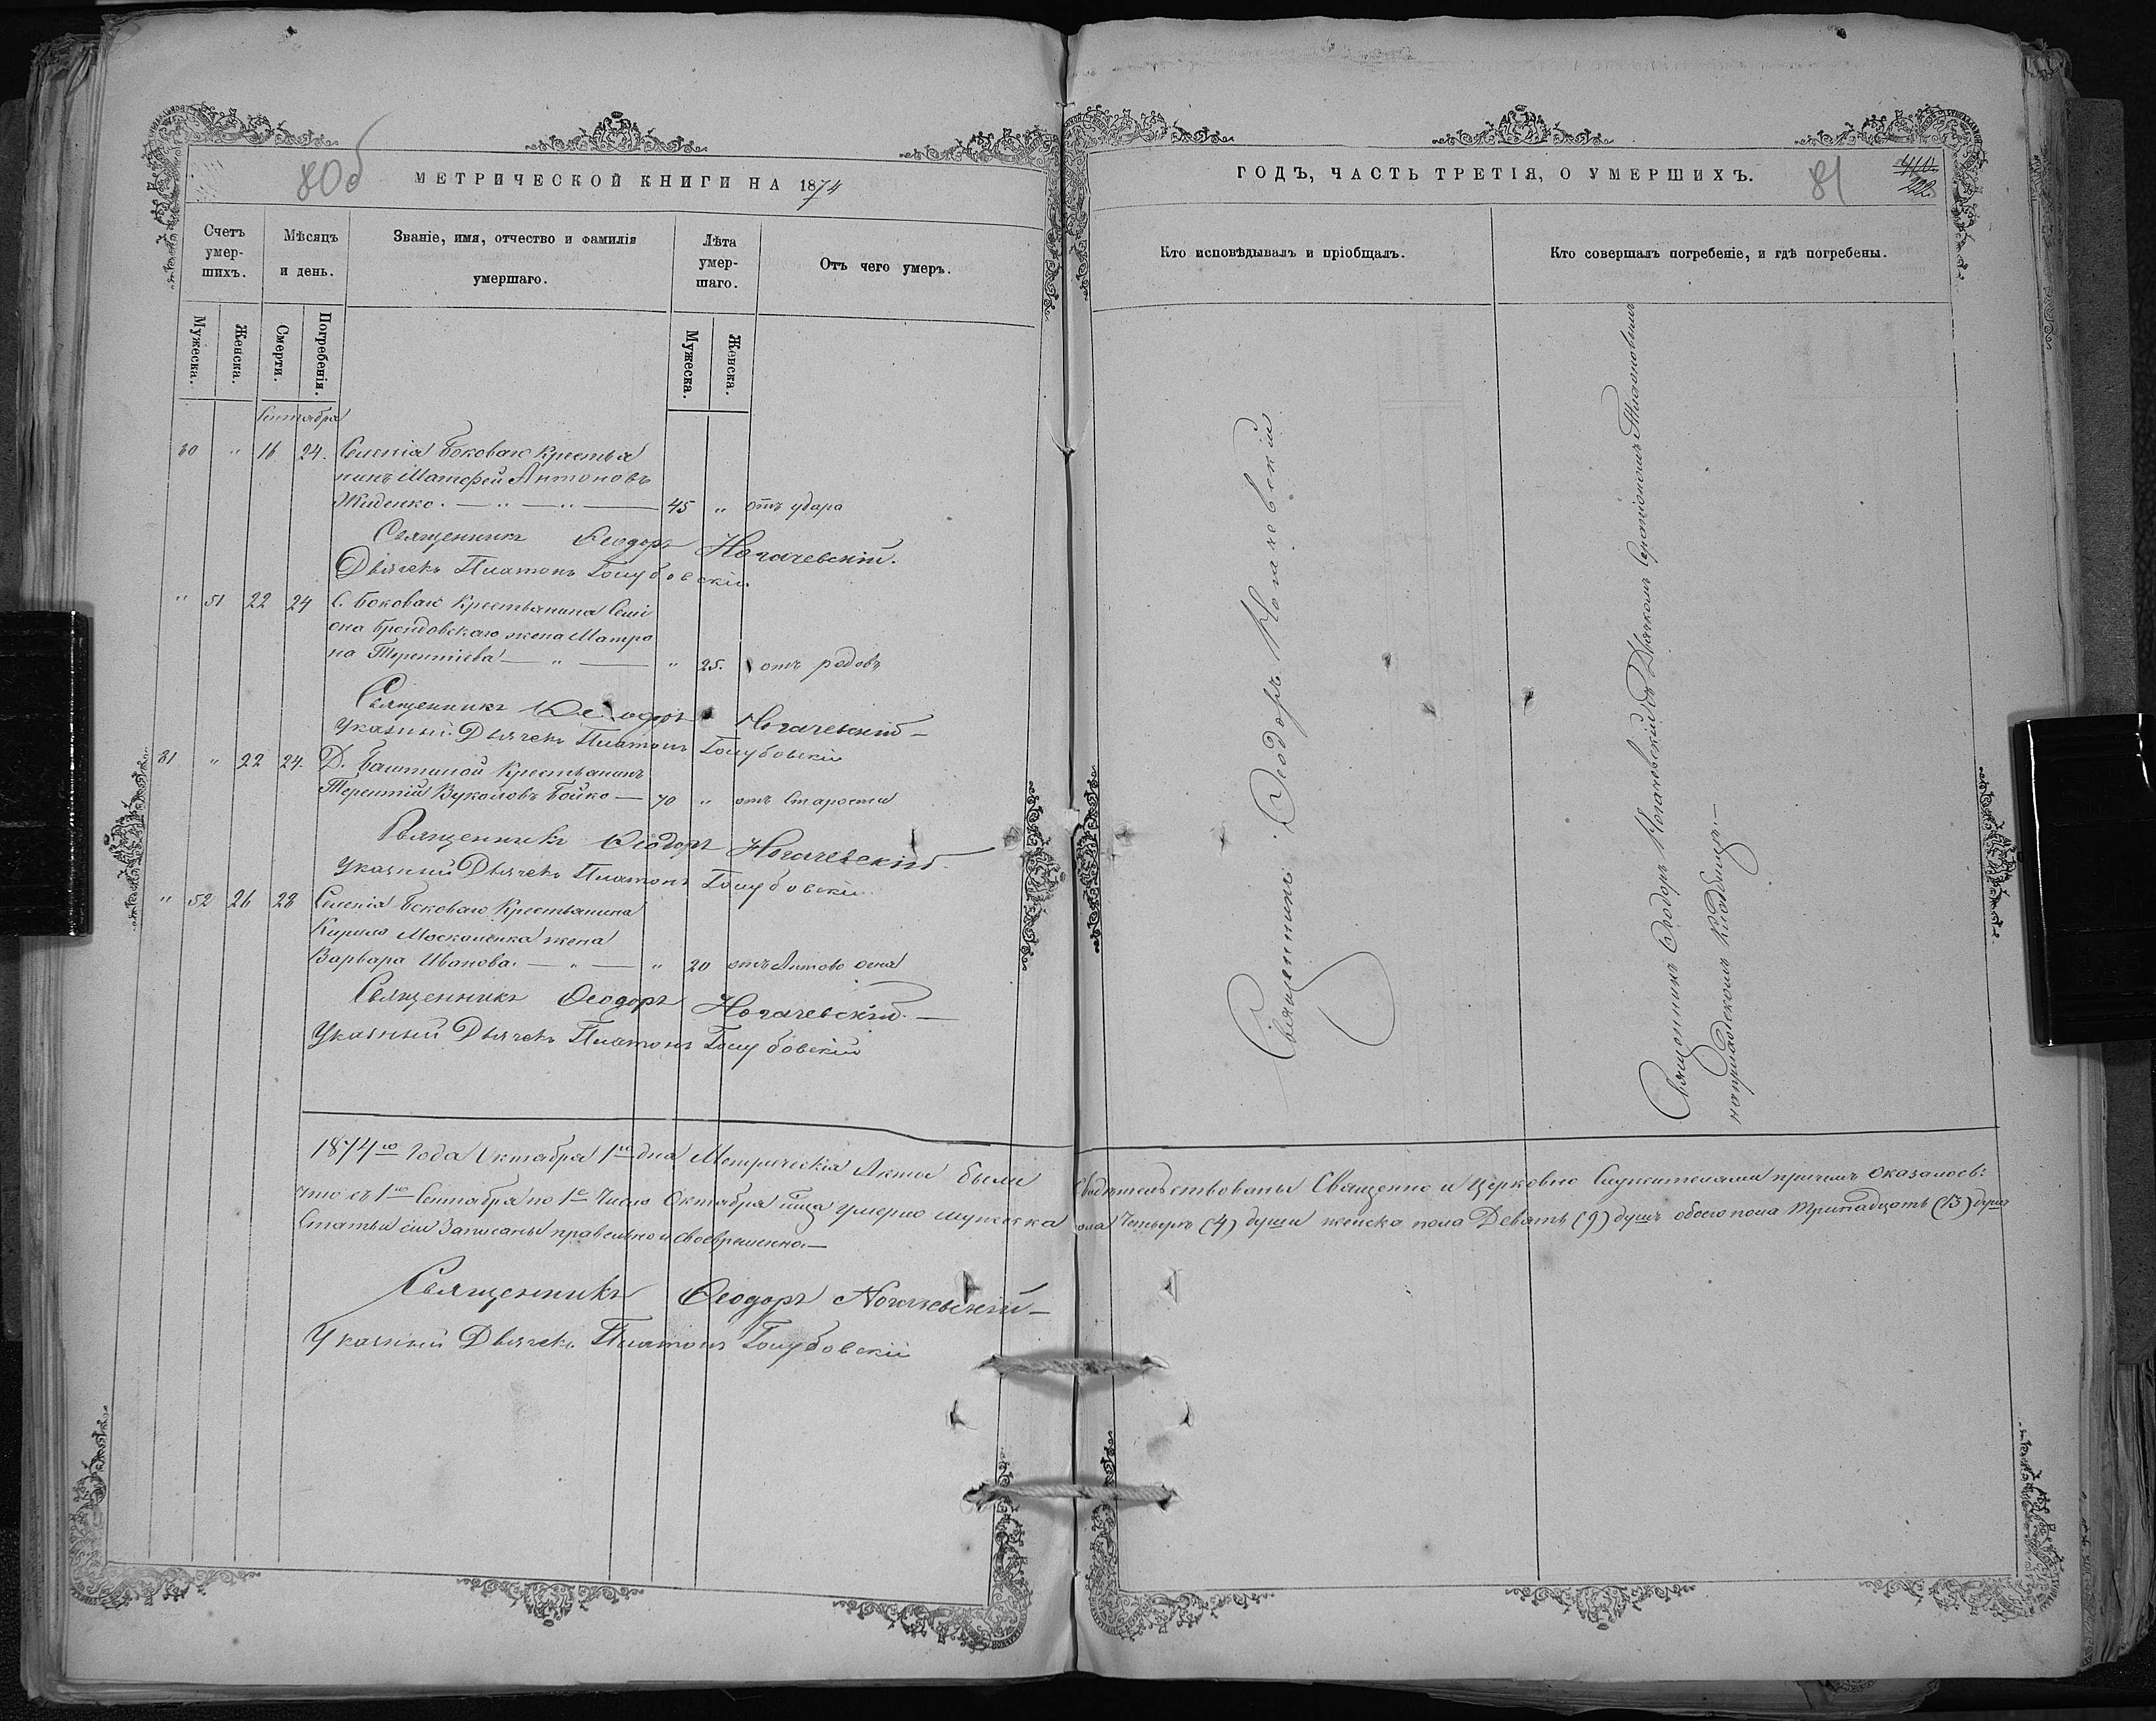 80об
МЕТРИЧЕСКОЙ КНИГИ НА 1874
Счетъ умер-шихъ.
Мѣсяцъ и день.
Званіе, имя, отчество и фамилія умершаго.
Лѣта умер-шаго.
Отъ чего умеръ.
Мужеска.
Женска.
Смерти.
Погребенія.
Мужеска.
Женска.
Сентября
80 " 16 24. Селенія Боковаго Крестья
нинъ Матфей Антоновъ
Жиденко. — " — " — 45 " отъ удара
Священникъ Ѳеодоръ Ногачевскій.
Дьячекъ Платонъ Голубовскій.
" 51 22 24 С. Боковаго Крестьянина Семі
она жена Матро
на Терентіева — " — " 25. отъ родовъ
Священникъ Ѳеодоръ Ногачевскій —
Указный Дьячекъ Платонъ Голубовскій
81 " 22 24. Д. Баштиной Крестьянинъ
Терентій Вуколовъ Бойко — 70 " отъ старости
Священникъ Ѳеодоръ Ногачевскій.
Указный Дьячекъ Платонъ Голубовскій
" 52 26 28 Селенія Боковаго Крестьянина
Кирила Москаленка жена
Варвара Иванова. — " — " 20 отъ Антово огня
Священникъ Ѳеодоръ Ногачевскій. —
Указный Дьячекъ Платонъ Голубовскій
1874го Года Октября 1го дня Метрическія Акты были
что съ 1го Сентября по 1е Число Октября умерло мужеска
Статьи сіи Записаны правельно и своевременно —
Священникъ Ѳеодоръ Ногачевскій —
Указный Дьячекъ Платонъ Голубовскій
ГОДЪ, ЧАСТЬ ТРЕТІЯ, О УМЕРШИХЪ.
81
222.
Кто исповѣдывалъ и пріобщалъ.
Кто совершалъ погребеніе, и гдѣ погребены.
Священникъ Ѳеодоръ Ногачевскій
Священникъ Ѳеодоръ Ногачевскій съ Дьячкомъ Серапіономъ
на приходскомъ кладбищѣ. —
свидѣтельствованы Священно и Церковно Служителями причемъ оказалось:
пола Четыре (4) души женска пола Девять (9) душъ обоего пола Тринадцать (13) душъ